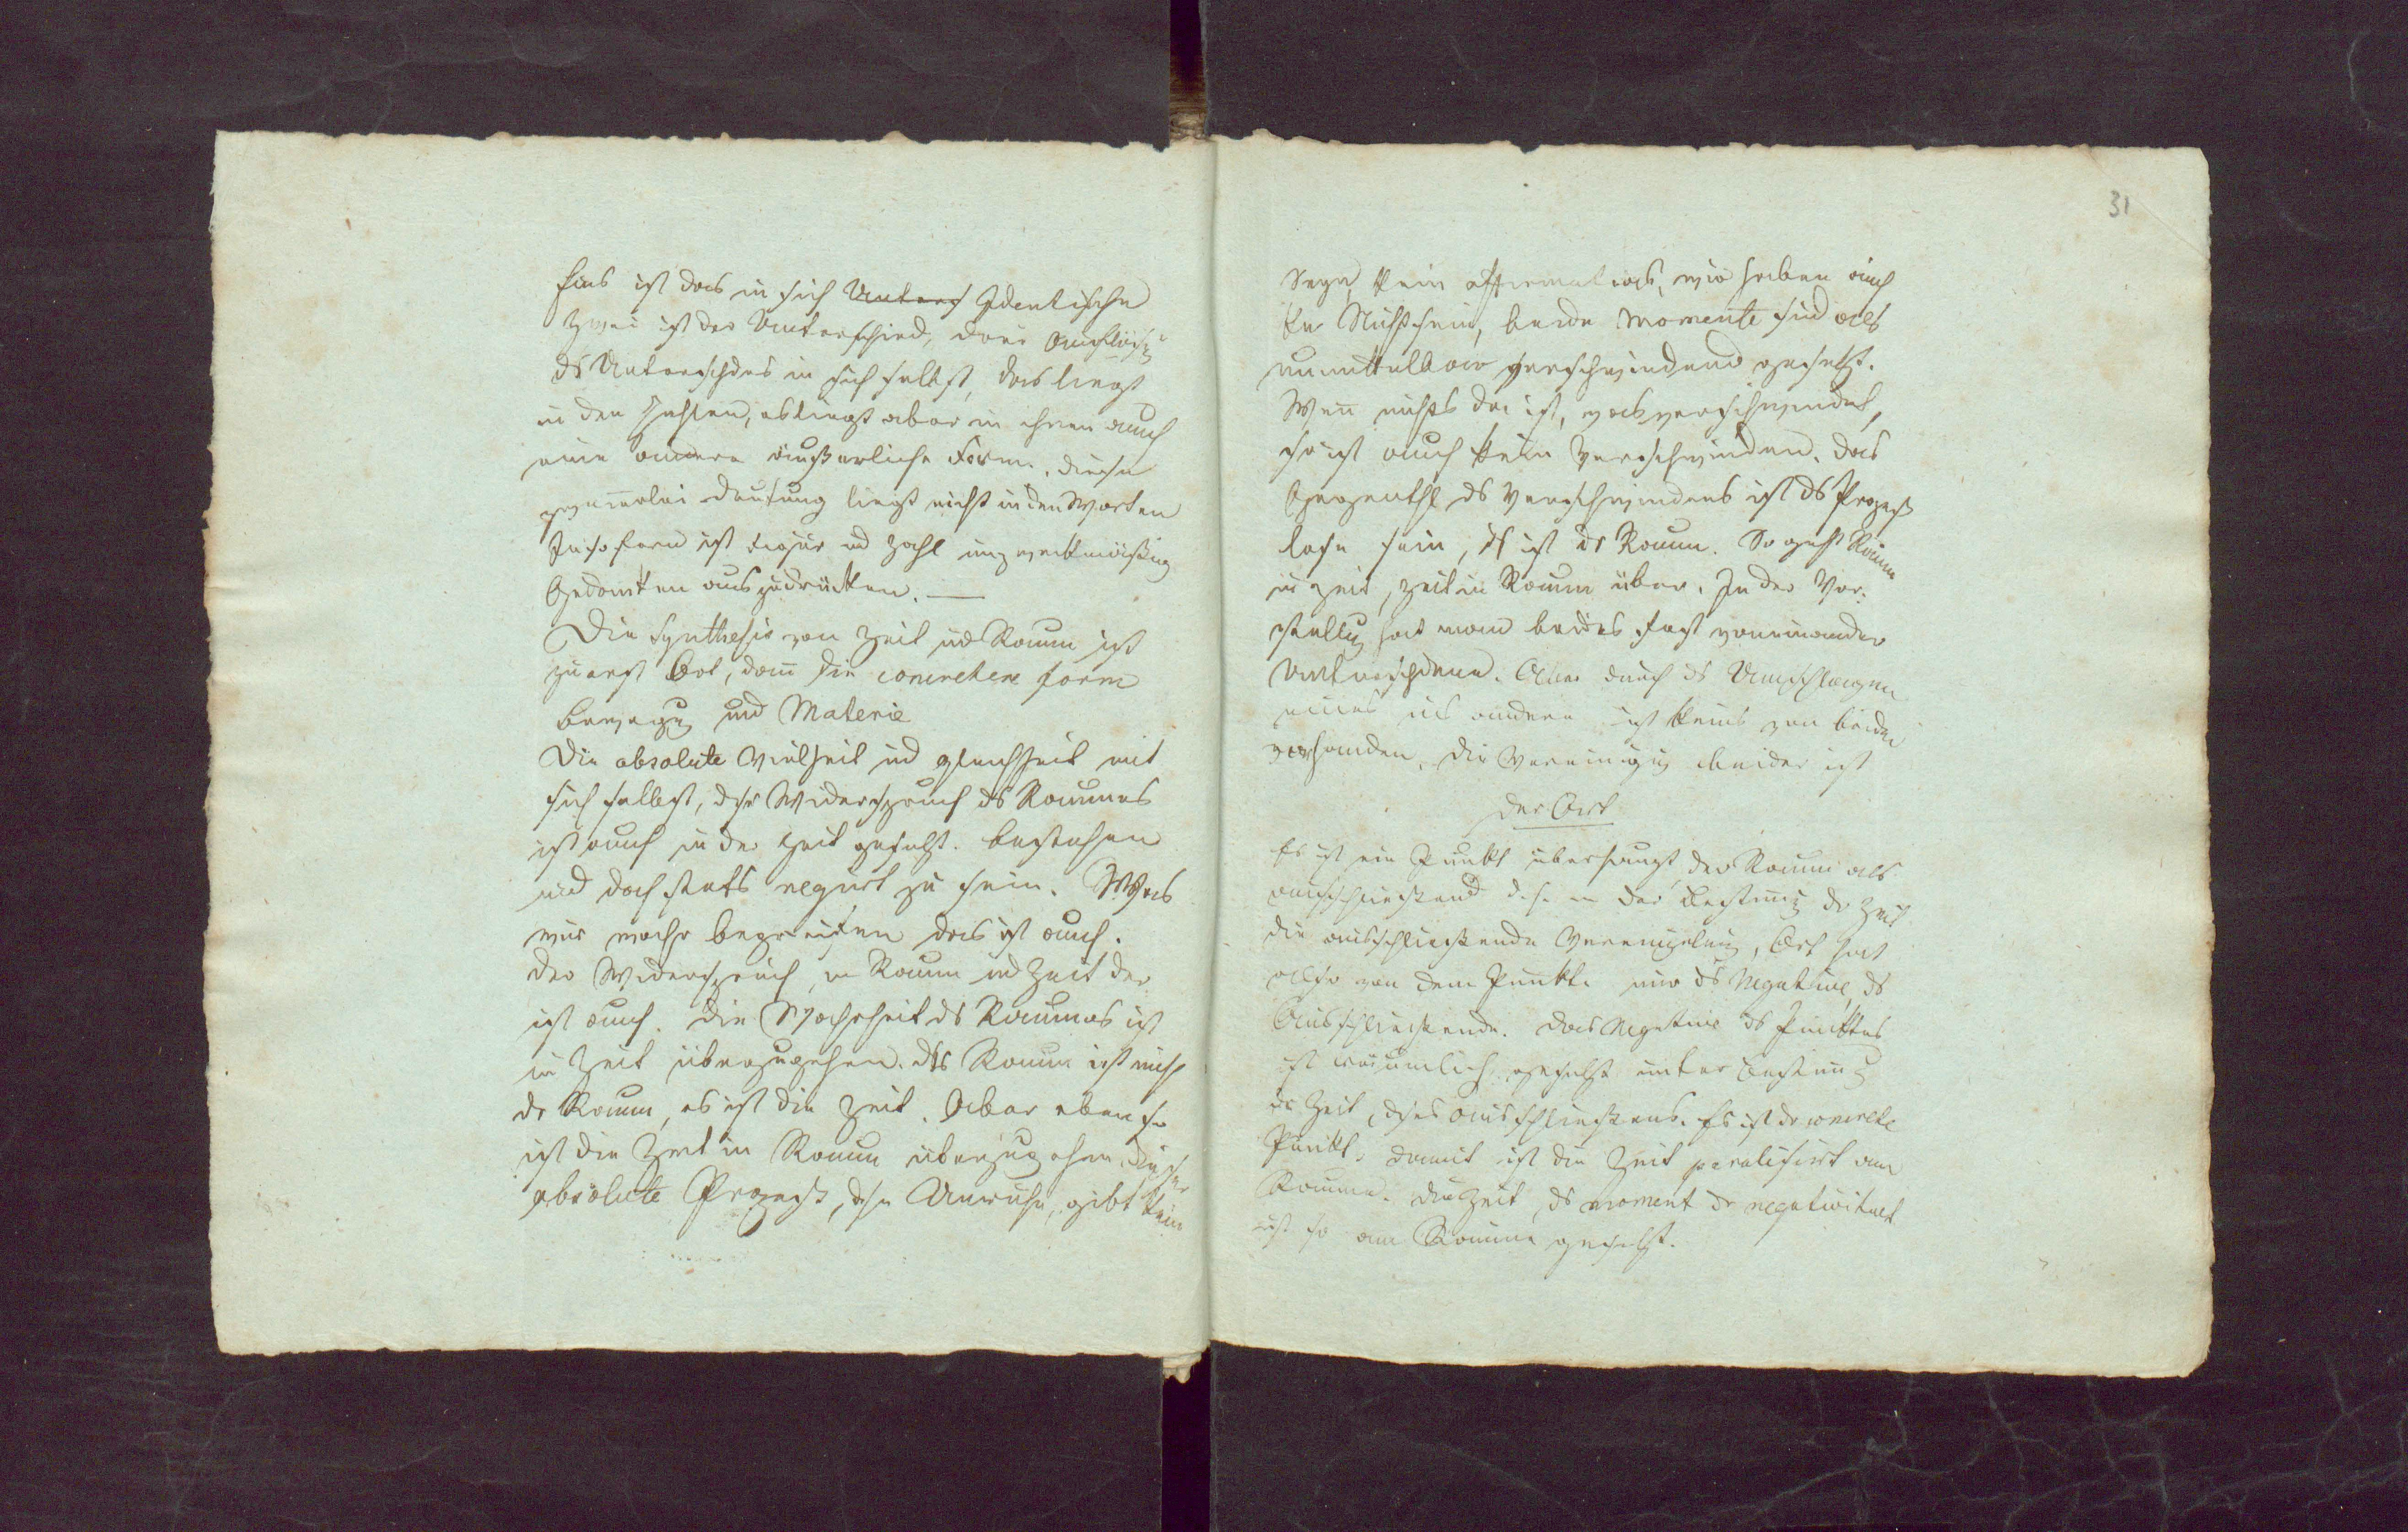 Eins ist das in sich Untersch Identische
Zwei ist der Unterschied, drei Auflösg
ds Unterschdes in sich selbst, das liegt
in den Zahlen, es liegt aber in ihnen auch
eine andere äußerliche Form. diese
zweierlei Deutung liegt nicht in den Worten
In so fern ist Figur und Zahl unzweckmäßig
Gedanken auszudrücken. —
Die Synthesis von Zeit und Raum ist
zuerst Ort, dann die concretere form
Bewegg und Materie
Die absolute Vielheit und gleichheit mit
sich selbst, dser Widerspruch ds Raumes
ist auch in der Zeit gesetzt. bestehen
und doch stets negirt zu sein. Was
wir wahr begreifen das ist auch.
der Widerspruch, in Raum und Zeit der
ist auch. Die Wahrheit ds Raumes ist
in Zeit überzugehen. ds Raum ist nicht
dr Raum, es ist die Zeit. Aber eben so
ist die Zeit in Raum überzugehen. Dieser
absolute Prozeß, dse Unruhe, gibt kein
31
Segn, kein affirmatives, wir haben auch
kein Nichtsein, beide Momente sind als
unmittelbar verschwindend gesetzt.
Wenn nichts da ist, was verschwindet,
so ist auch kein Verschwinden. das
Gegenthl ds Verschwindens ist ds Prozeß
lose sein, ds ist dr Raum. So geht Raum
in Zeit, Zeit in Raum über. In der Vor-
stellg hat man beides fest voneinander
Unterschdenn. Aber durch ds Umschlagen
eines ins andere ist keins von beiden
vorhanden, die Vereinigug beider ist
der Ort
Es ist ein Punkt überhaupt, der Raum als
ausschließend d. h. in der Bestimmg dr Zeit
die ausschließende Vereinzelung, Ort hat
also von dem Punkte nur ds Negative, ds
Ausschließende. das Negative ds Punktes
ist räumlich gesetzt unter Bestimmg
dr Zeit, dses Ausschließens. Es ist dr concrete
Punkt. damit ist die Zeit paralisirt am
Raume. die Zeit, ds moment dr negativitaet
ist so am Raume gesetzt.